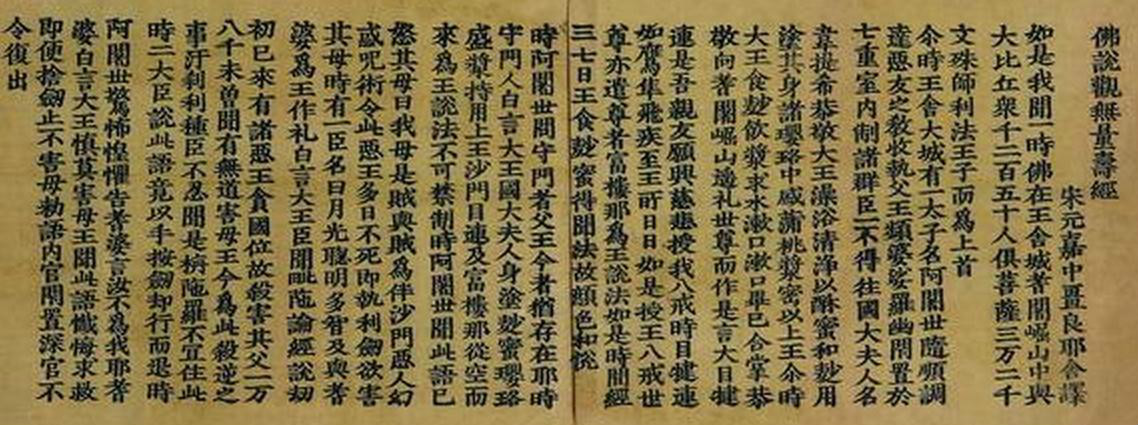 佛說觀無量壽經
宋元嘉中畺良耶舍譯
如是我聞一時佛在王舍城耆闍崛山中與
大比丘衆千二百五十人俱菩薩三万二千
文殊師利法王子而為上首
尒時王舍大城有一太子名阿闍世隨順調
達惡友之教收執父王頻婆娑羅幽閇置於
七重室內制諸群臣一不得往國大夫人名
韋提希恭敬大王澡浴清淨以酥蜜和麨用
塗其身諸瓔珞中盛蒲桃漿密以上王尒時
大王食麨飲漿求水漱口漱口畢已合掌恭
敬向耆闍崛山遥礼世尊而作是言大目揵
連是吾親友願興慈悲授我八戒時目揵連
如鷹隼飛疾至王所日日如是授王八戒世
尊亦遣尊者富樓那為王說法如是時閒經
三七日王食麨蜜得聞法故顏色和悅
時阿闍世問守門者父王今者猶存在耶時
守門人白言大王國大夫人身塗麨蜜瓔珞
盛漿持用上王沙門目連及富樓那從空而
來為王說法不可禁制時阿闍世聞此語已
怒其母曰我母是賊與賊為伴沙門惡人幻
惑呪術令此惡王多日不死即執利劒欲害
其母時有一臣名曰月光聰明多智及與耆
婆為王作礼白言大王臣聞毗陁論經說劫
初已來有諸惡王貪國位故殺害其父一万
八千未曾聞有無道害母王今為此殺逆之
事汙刹利種臣不忍聞是栴陁羅不宜住此
時二大臣說此語竟以手按劒却行而退時
阿闍世驚怖惶懼告耆婆言汝不為我耶耆
婆白言大王慎莫害母王聞此語懺悔求救
即便捨劒止不害母勑語內官閇置深宫不
令復出